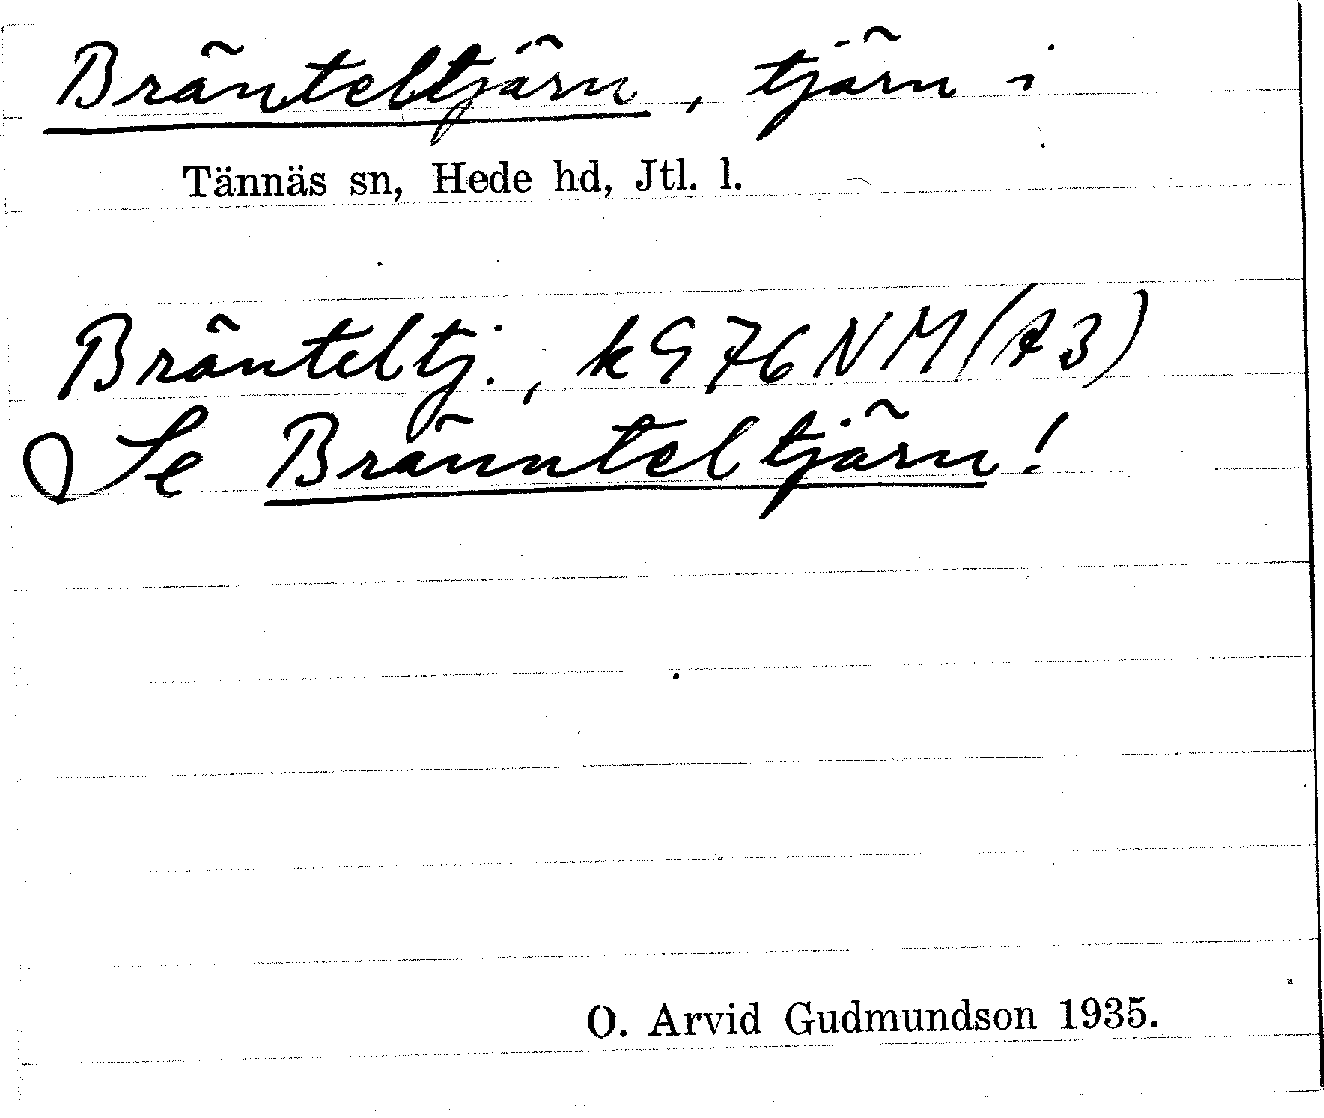 Bränteltjärn, tjärn i
Tännäs sn, Hede hd, Jtl. l.
Bränteltj., kG76NM(A3)
Se Brännteltjärn!
O. Arvid Gudmundson 1935.